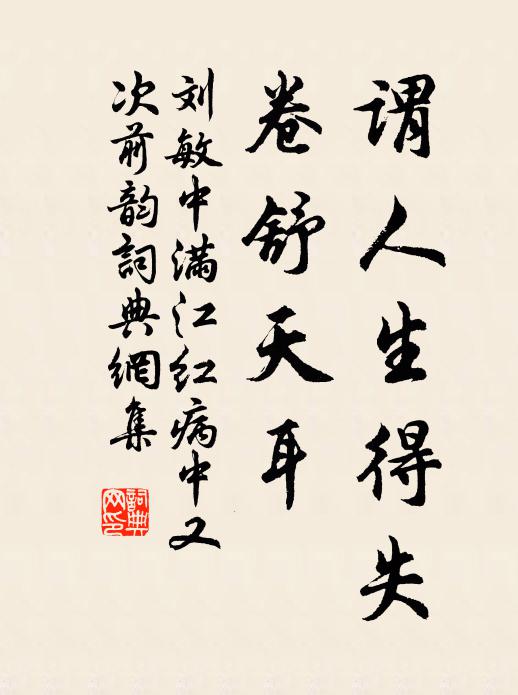 谓人生得失
卷舒天耳
刘敏中满江红病中又
次前韵词典網集
詞典网印